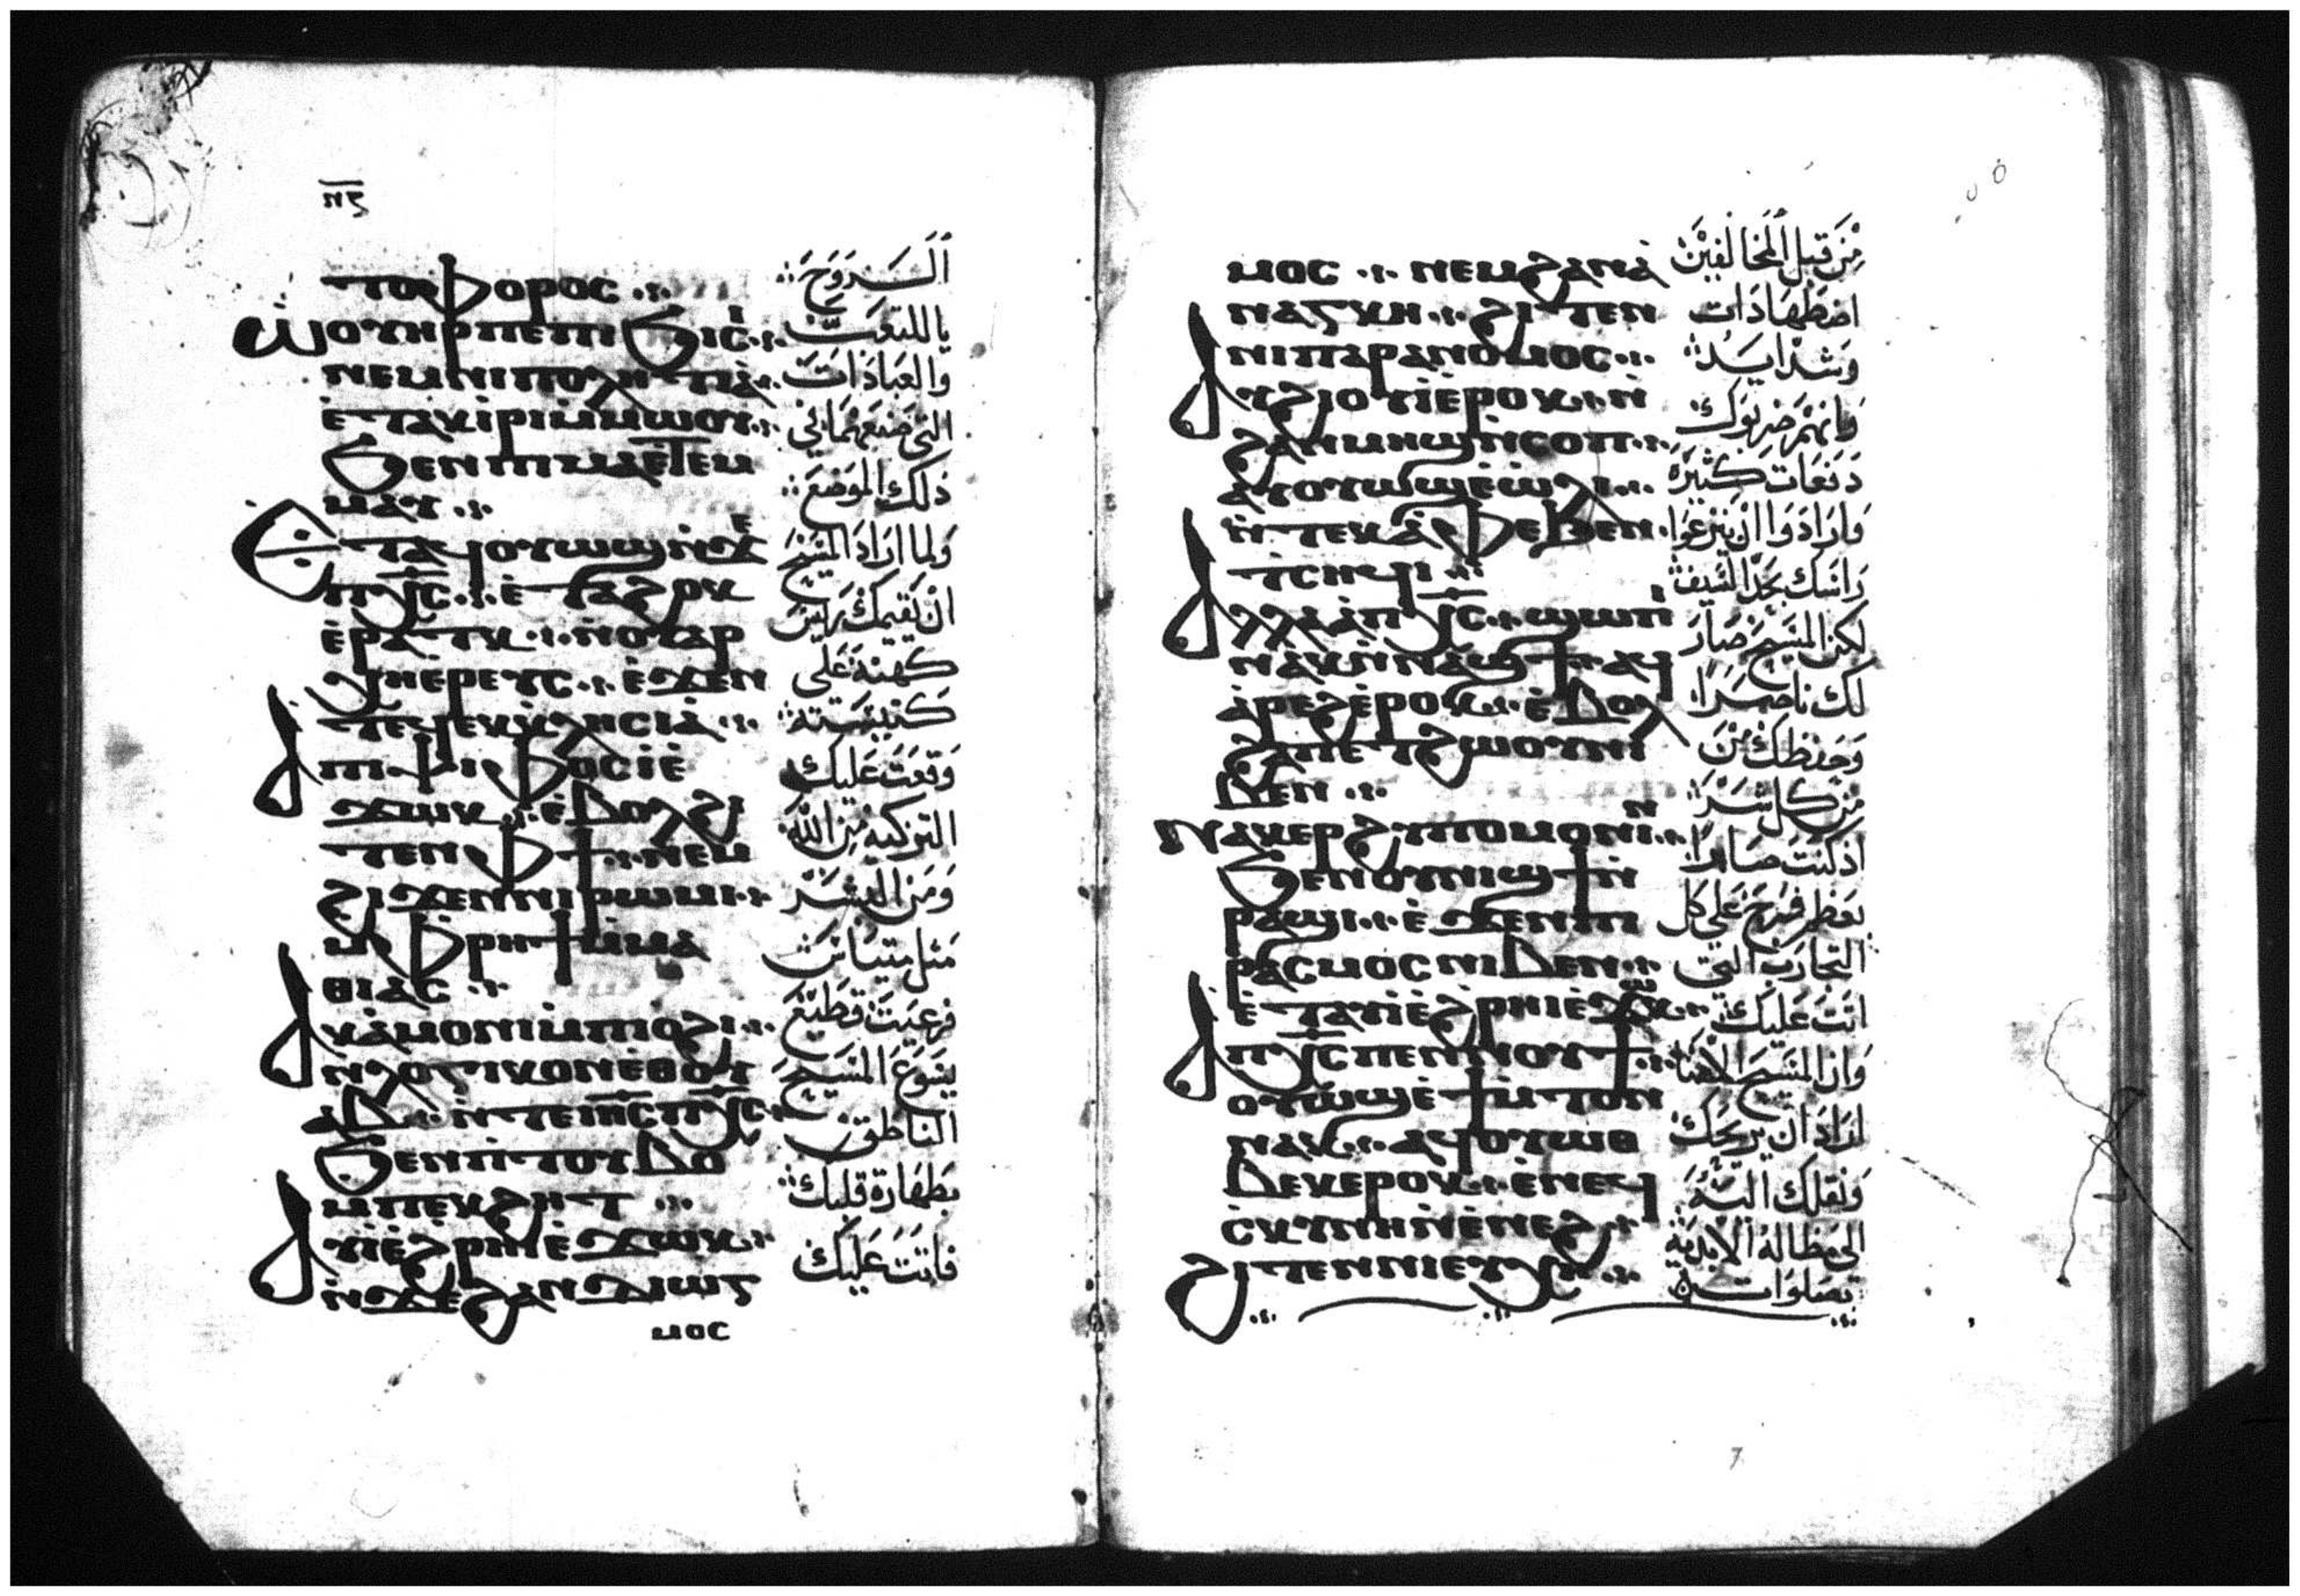 ⲛⲋ
ⲧⲟⲫⲟⲣⲟⲥ
ⲱⲟⲩⲏⲣⲡⲉⲡⲓϧⲓⲥⲓ
ⲛⲉⲙⲛⲓⲡⲟⲗⲏⲧⲓⲁ
ⲉⲧⲁⲕⲓⲣⲓⲙⲙⲱⲟⲩ
ϧⲉⲛⲡⲓⲙⲁⲉⲧⲉⲙ
ⲙⲁⲩ
ⲉⲧⲁϥⲟⲩⲱϣⲛϫⲉ
ⲡⲭⲥ ⲉⲧⲁϩⲟⲕ
ⲉⲣⲁⲧⲕ ⲛⲟⲩⲁⲣ
ⲭⲏⲉⲣⲉⲩⲥ ⲉϫⲉⲛ
ⲧⲉϥⲉⲕⲕⲗⲏⲥⲓⲁ
ⲁⲡⲓⲯⲏⲫⲟⲥ ⲓⲉ
ϫⲱⲕ ⲉⲃⲟⲗϩⲓ
ⲧⲉⲛⲫϯ ⲛⲉⲙ
ϩⲓϫⲉⲛⲛⲓⲣⲱⲙⲓ
ⲙⲫⲣⲏϯⲙⲙⲁ
ⲑⲓⲁⲥ
ⲁⲕⲁⲙⲟⲛⲓⲙⲡⲓⲟϩⲓ
ⲛⲗⲟⲅⲓⲕⲟⲛⲉⲑⲟⲩ
ⲁⲃ ⲛⲧⲉⲓⲏⲥⲡⲭⲥ
ϧⲉⲛⲡⲧⲟⲩⲃⲟ
ⲙⲡⲉⲕϩⲏⲧ
ⲁⲩⲓⲉϩⲣⲏⲓⲉϫⲱⲕ
ⲛϫⲉϩⲁⲛⲇⲓⲱⲅ
ⲙⲟⲥ
الســروح
يا للتعب
والعبادات
التي صنعتهما في
ذلك الموضع
ولما اراد المسيح
ان يقيمك رييس
كهنة على
كنيسته
وقعت عليك
التزكيه من الله
ومن البشر
مثل متياس
فرعيت قطيع
يسوع المسيح
الناطق
بطهارة قلبك
فاتت عليك
ⲙⲟⲥ ⲛⲉⲙϩⲁⲛⲁ
ⲛⲁⲅⲕⲏ ϩⲓⲧⲉⲛ
ⲛⲓⲡⲁⲣⲁⲛⲟⲙⲟⲥ
ⲁⲩϩⲓⲟⲩⲓⲉⲣⲟⲕ ⲛ
ϩⲁⲛⲙⲏϣⲛⲥⲟⲡ
ⲁⲩⲟⲩⲱϣⲉⲱⲗⲓ
ⲛⲧⲉⲕⲁⲫⲉϧⲉⲛ
ⲧⲥⲏϥⲓ
ⲁⲗⲗⲁⲡⲭⲥ ϣⲱⲡⲓ
ⲛⲁⲕⲛⲛⲁϣϯ ⲁϥ
ⲁⲣⲉϩⲉⲣⲟⲕ ⲉⲃⲟⲗ
ϩⲁⲡⲉⲧϩⲱⲟⲩⲛⲓ
ⲃⲉⲛ
ⲛⲁⲕⲉⲣϩⲩⲡⲟⲙⲟⲛⲓⲛ
ϧⲉⲛⲟⲩⲛⲓϣϯⲛ
ⲣⲁϣⲓ ⲉϫⲉⲛⲡⲓ
ⲣⲁⲥⲙⲟⲥⲛⲓⲃⲉⲛ
ⲉⲧⲁⲩⲓⲉϩⲣⲏⲓⲉϫⲱⲕ
ⲁⲡⲭⲥⲡⲉⲛⲛⲟⲩϯ
ⲟⲩⲱϣⲉϯⲙⲧⲟⲛ
ⲛⲁⲕ ⲁϥⲟⲩⲱⲑ
ⲃⲉⲕⲉⲣⲟⲕ ⲉⲛⲉϥ
ⲥⲕⲩⲛⲏⲛⲉⲛⲉϩ
ϩⲓⲧⲉⲛⲛⲓⲉⲩⲭⲏ
من قبل المخالفين
اضطهادات
وشدايد
وانهم ضربوك
دفعات كثيرة
وارادوا ان ينزعوا
راسك بحد السيف
لكن المسيح صار
لك ناصرا
وحفظك من
من كل شر
اذ كنت صابرا
بعظم فرح على كل
التجارب التي
اتت عليك
وان المسيح الاهنا
اراد ان يريحك
ونقلك اليه
الى مظاله الابدية
بصلوات